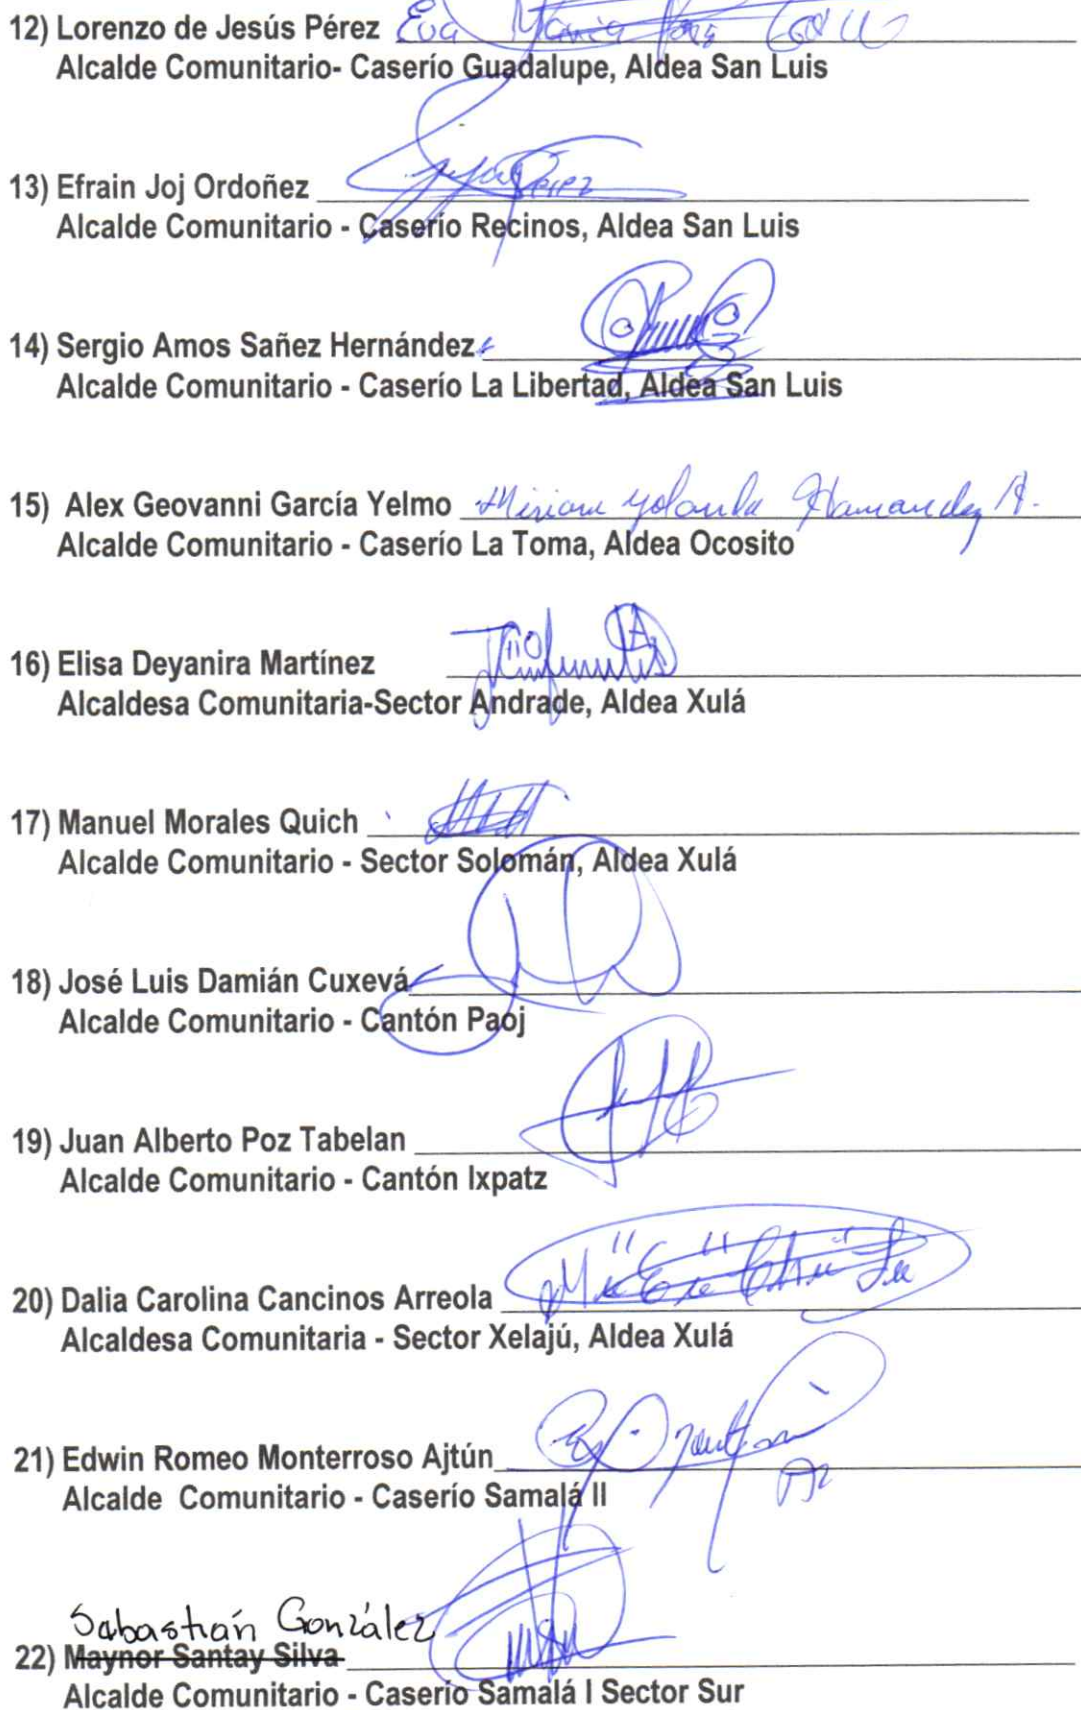 12) Lorenzo de Jesús Pérez Eva María
Alcalde Comunitario- Caserío Guadalupe, Aldea San Luis
13) Efrain Joj Ordoñez
Alcalde Comunitario - Caserío Recinos, Aldea San Luis
14) Sergio Amos Sañez Hernández
Alcalde Comunitario - Caserío La Libertad, Aldea San Luis
15) Alex Geovanni García Yelmo Miriam Yolanda
Alcalde Comunitario - Caserío La Toma, Aldea Ocosito
16) Elisa Deyanira Martínez
Alcaldesa Comunitaria-Sector Andrade, Aldea Xulá
17) Manuel Morales Quich
Alcalde Comunitario - Sector Solomán, Aldea Xulá
18) José Luis Damián Cuxevá
Alcalde Comunitario - Cantón Paoj
19) Juan Alberto Poz Tabelan
Alcalde Comunitario - Cantón Ixpatz
20) Dalia Carolina Cancinos Arreola
Alcaldesa Comunitaria - Sector Xelajú, Aldea Xulá
21) Edwin Romeo Monterroso Ajtún
Alcalde Comunitario - Caserío Samalá II
Sabastián González
22) Maynor Santay Silva
Alcalde Comunitario - Caserío Samalá I Sector Sur